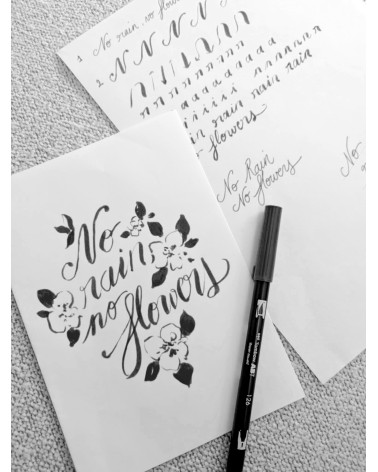 1 No rain, no flowers
2 N N N N N
n n n n n n n n
a a a a a a a a
i i i i i
n n n n n n n n
rain rain rain rain
flowers
No Rain
No flowers
No
No
rain,
no flowers
ABT
126